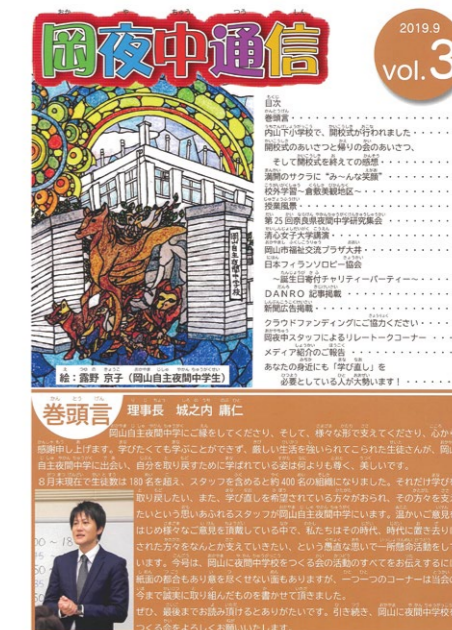 岡夜中通信
2019.9
vol.3
目次
巻頭言
内山下小学校で、開校式が行われました
開校式のあいさつと帰りの会のあいさつ、
そして開校式を終えての感想
満開のサクラに "み~んな笑顔"
校外学習~倉敷美観地区~
授業風景
第25回奈良県夜間中学研究集会
清心女子大学講演
岡山市福祉交流プラザ大井
日本フィランソロピー協会
~誕生日寄付チャリティーパーティー~
DANRO 記事掲載
新聞広告掲載
クラウドファンディングにご協力ください
岡夜中スタッフによるリレートークコーナー
メディア紹介のご報告
あなたの身近にも「学び直し」を
必要としている人が大勢います!
岡山自主夜間中学校
絵:露野 京子(岡山自主夜間中学生)
巻頭言 理事長 城之内 庸仁
岡山自主夜間中学にご縁をしてくださり、そして、様々な形で支えてくださり、心か
感謝申し上げます。学びたくても学ぶことができず、厳しい生活を強いられてこられた生徒さんが、岡山
自主夜間中学に出会い、自分を取り戻すために学ばれている姿は何よりも尊く、美しいです。
8月末現在で生徒数は180名を超え、スタッフを含めると約400名の組織になりました。それだけ学び
取り戻したい、また、学び直しを希望されている方々がおられ、その方々を支
たいという思いあふれるスタッフが岡山自主夜間中学にいます。温かいご意見
はじめ様々なご意見を頂戴している中で、私たちはその時代、時代に置き去り
された方々をなんとか支えていきたい、という愚直な思いで一所懸命活動をして
います。今号は、岡山に夜間中学校をつくる会の活動のすべてをお伝えするに
紙面の都合もあり意を尽くせない面もありますが、一つ一つのコーナーは当会の
今まで誠実に取り組んだものを書かせて頂きました。
ぜひ、最後までお読み頂けるとありがたいです。引き続き、岡山に夜間中学校を
つくる会をよろしくお願いいたします。